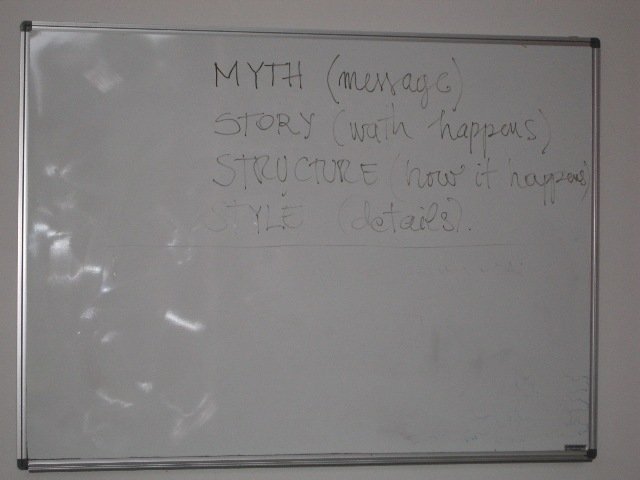 MYTH (message)
STORY (wath happens)
STRUCTURE (how it happens)
STYLE (details).